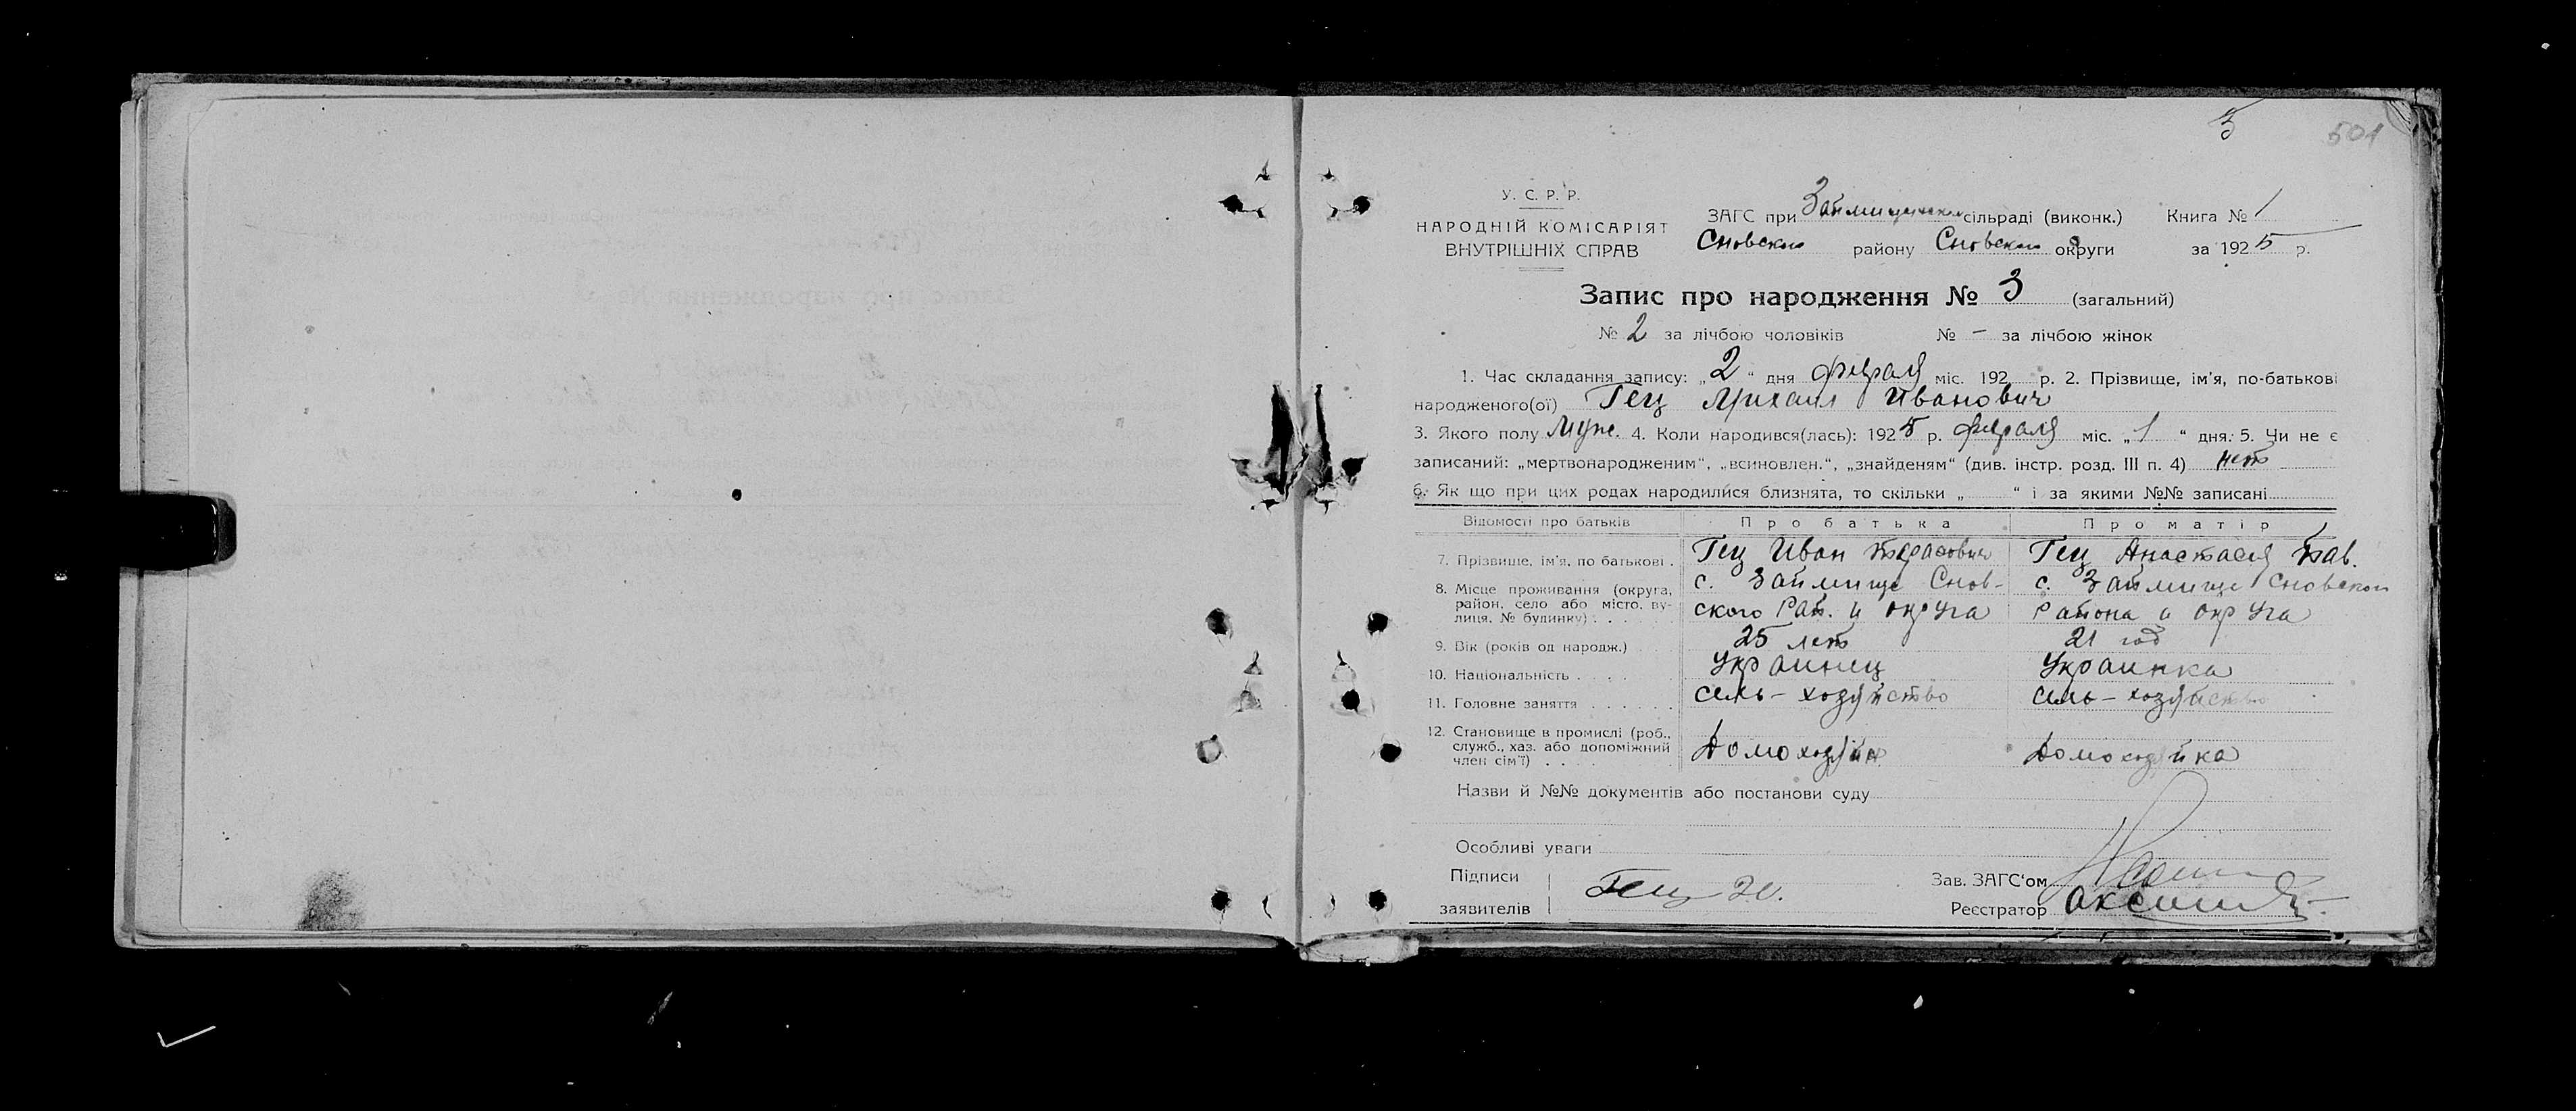 5 501
У. С. Р. Р.
НАРОДНІЙ КОМІСАРІЯТ
ВНУТРІШНІХ СПРАВ
ЗАГС при Займищенской сільраді (виконк.) Книга № 1
Сновского району Сновской округи за 1925 р.
Запис про народження № 3 (загальний)
№ 2 за лічбою чоловіків № – за лічбою жінок
1. Час складання запису: „2“ дня февраля міс. 192 р. 2. Прізвище, ім'я, по-батькові
народженого(ої) Гец Михаил Иванович
3. Якого полу Муж. 4. Коли народився(лась): 1925 р. февраля міс. „1“ дня. 5. Чи не є
записаний: „мертвонародженим“, „всиновлен.“, „знайденям“ (див. інстр. розд. III п. 4) нет
6. Як що при цих родах народилися близнята, то скільки „ “ і за якими №№ записані
Відомості про батьків Про батька Про матір
7. Прізвище, ім'я, по батькові . Гец Иван Тарасович Гец Анастасия Пав.
8. Місце проживання (округа, район, село або місто, вулиця, № будинку) . . с. Займище Сновского Рай. и округа с. Займище Сновского Района и округа
9. Вік (років од народж.) 25 лет 21 год
10. Національність . . . . Украинец Украинка
11. Головне заняття . . . . . . сель-хозяйство сель-хозяйство
12. Становище в промислі (роб., служб., хаз. або допоміжний член сім'ї) . . . . Домохозяин Домохозяйка
Назви й №№ документів або постанови суду
Особливі уваги
Підписи
заявителів Гец
Зав. ЗАГС'ом
Реєстратор